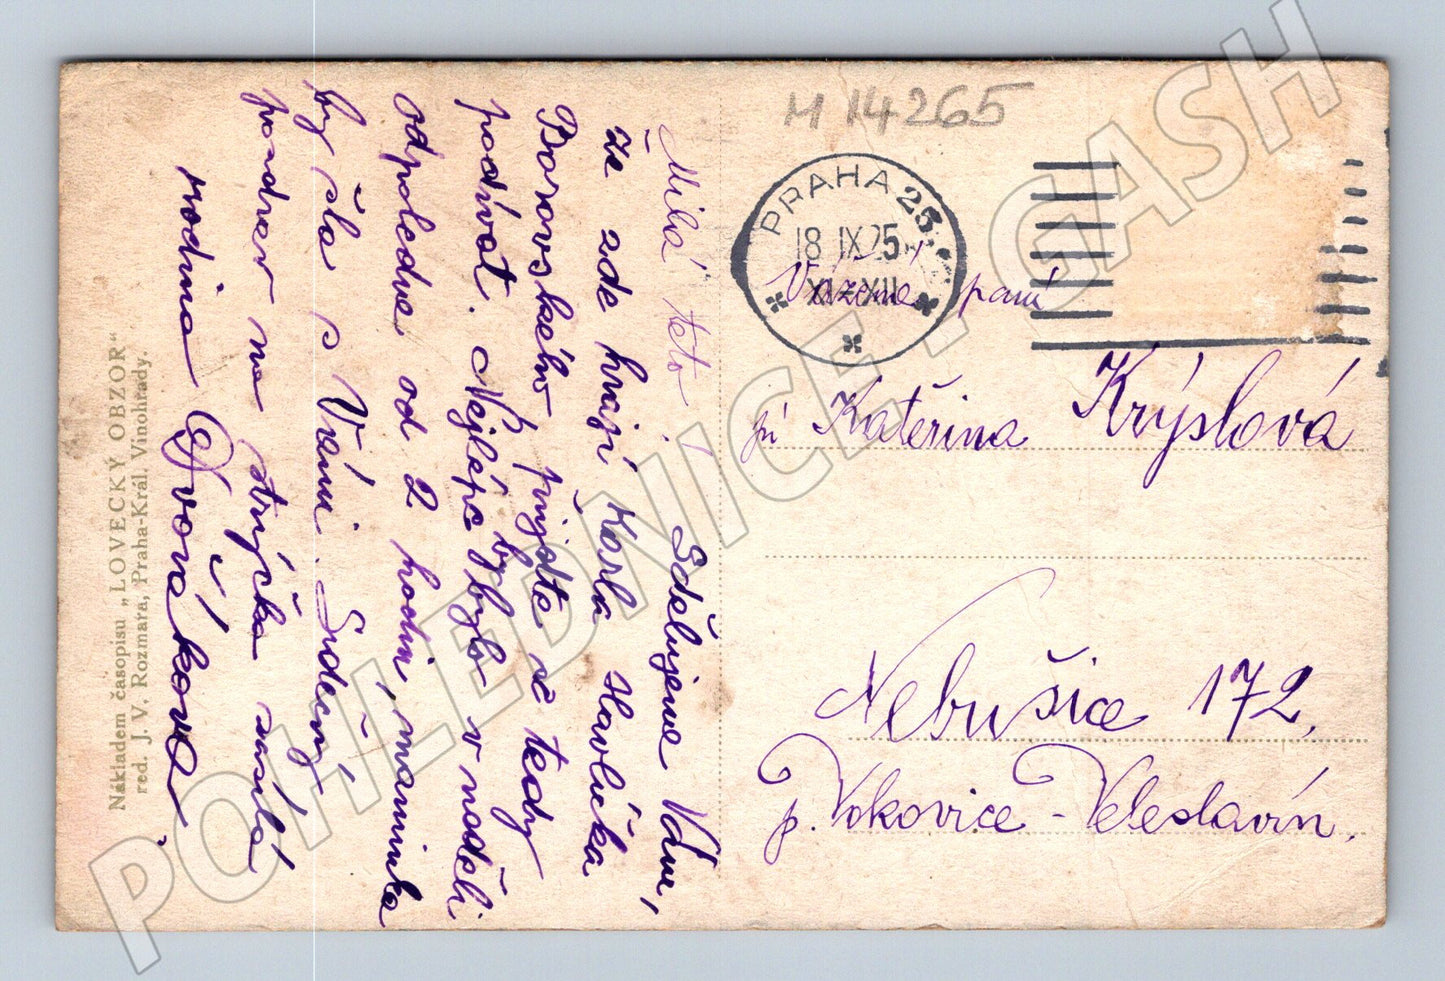 Milá teto! Sdělujeme Vám,
že zde hrají Karla Havlíčka
Borovského přijďte se tedy
podívat. Nejlépe by bylo v neděli
odpoledne od 2 hodin, maminka
by šla s Vámi. Srdečný
pozdrav na strýčka zasílá
rodina Dvořákova.
Nákladem časopisu „LOVECKÝ OBZOR“
red. J. V. Rozmara, Praha-Král. Vinohrady.
M 14265
PRAHA 25
18 IX 25
XI-XII
Vážená paní
pí Kateřina Krýslová
Nebušice 172.
p. Vokovice - Veleslavín.
POHLEDNICE.CASH